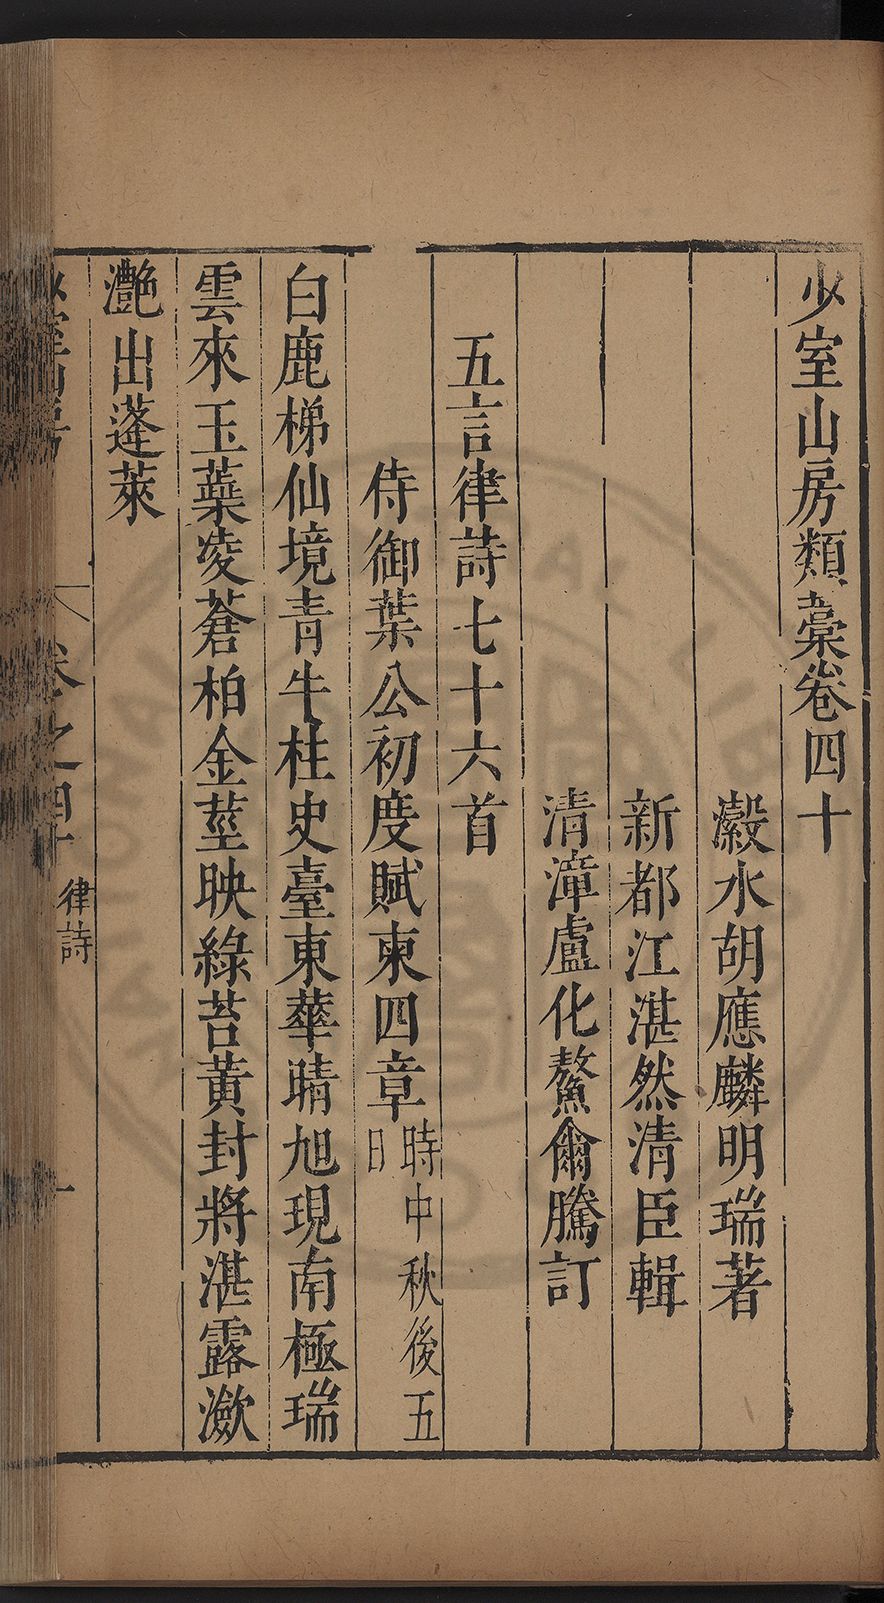 少室山房類藁卷四十
瀫水胡應麟明瑞著
新都江湛然清臣輯
清漳盧化鰲爾騰訂
五言律詩七十六首
侍御葉公初度賦柬四章時中秋後五日
白鹿梯仙境青牛柱史臺東華晴旭現南極瑞
雲來玉蘂凌蒼柏金莖映綠苔黃封將湛露瀲
灧出蓬萊
卷之四十
律詩
一